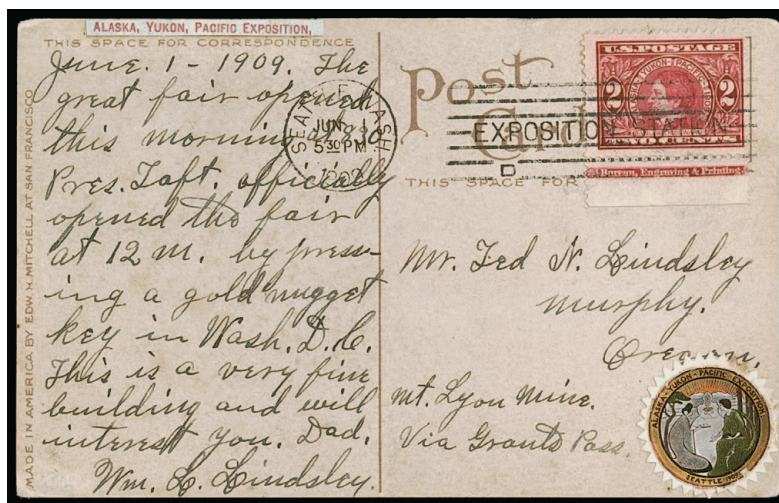 ALASKA, YUKON, PACIFIC EXPOSITION,
THIS SPACE FOR CORRESPONDENCE
June. 1 - 1909. The
great fair opened
this morning.
Pres. Taft. officially
opened the fair
at 12 M. by press-
ing a gold nugget
key in Wash. D.C.
This is a very fine
building and will
interest you. Dad.
Wm. L. Lindsley.
MADE IN AMERICA BY EDW. H. MITCHELL AT SAN FRANCISCO
SEATTLE, WASH.
JUN
530 PM
1909
Post
Card
EXPOSITION STATION
D
THIS SPACE FOR
U.S. POSTAGE
ALASKA-YUKON-PACIFIC-1909
2 2
TWO CENTS
Bureau, Engraving & Printing
Mr. Ted N. Lindsley
Murphy.
Oregon.
Mt. Lyon Mine.
Via Grants Pass.
ALASKA-YUKON-PACIFIC EXPOSITION
SEATTLE 1909